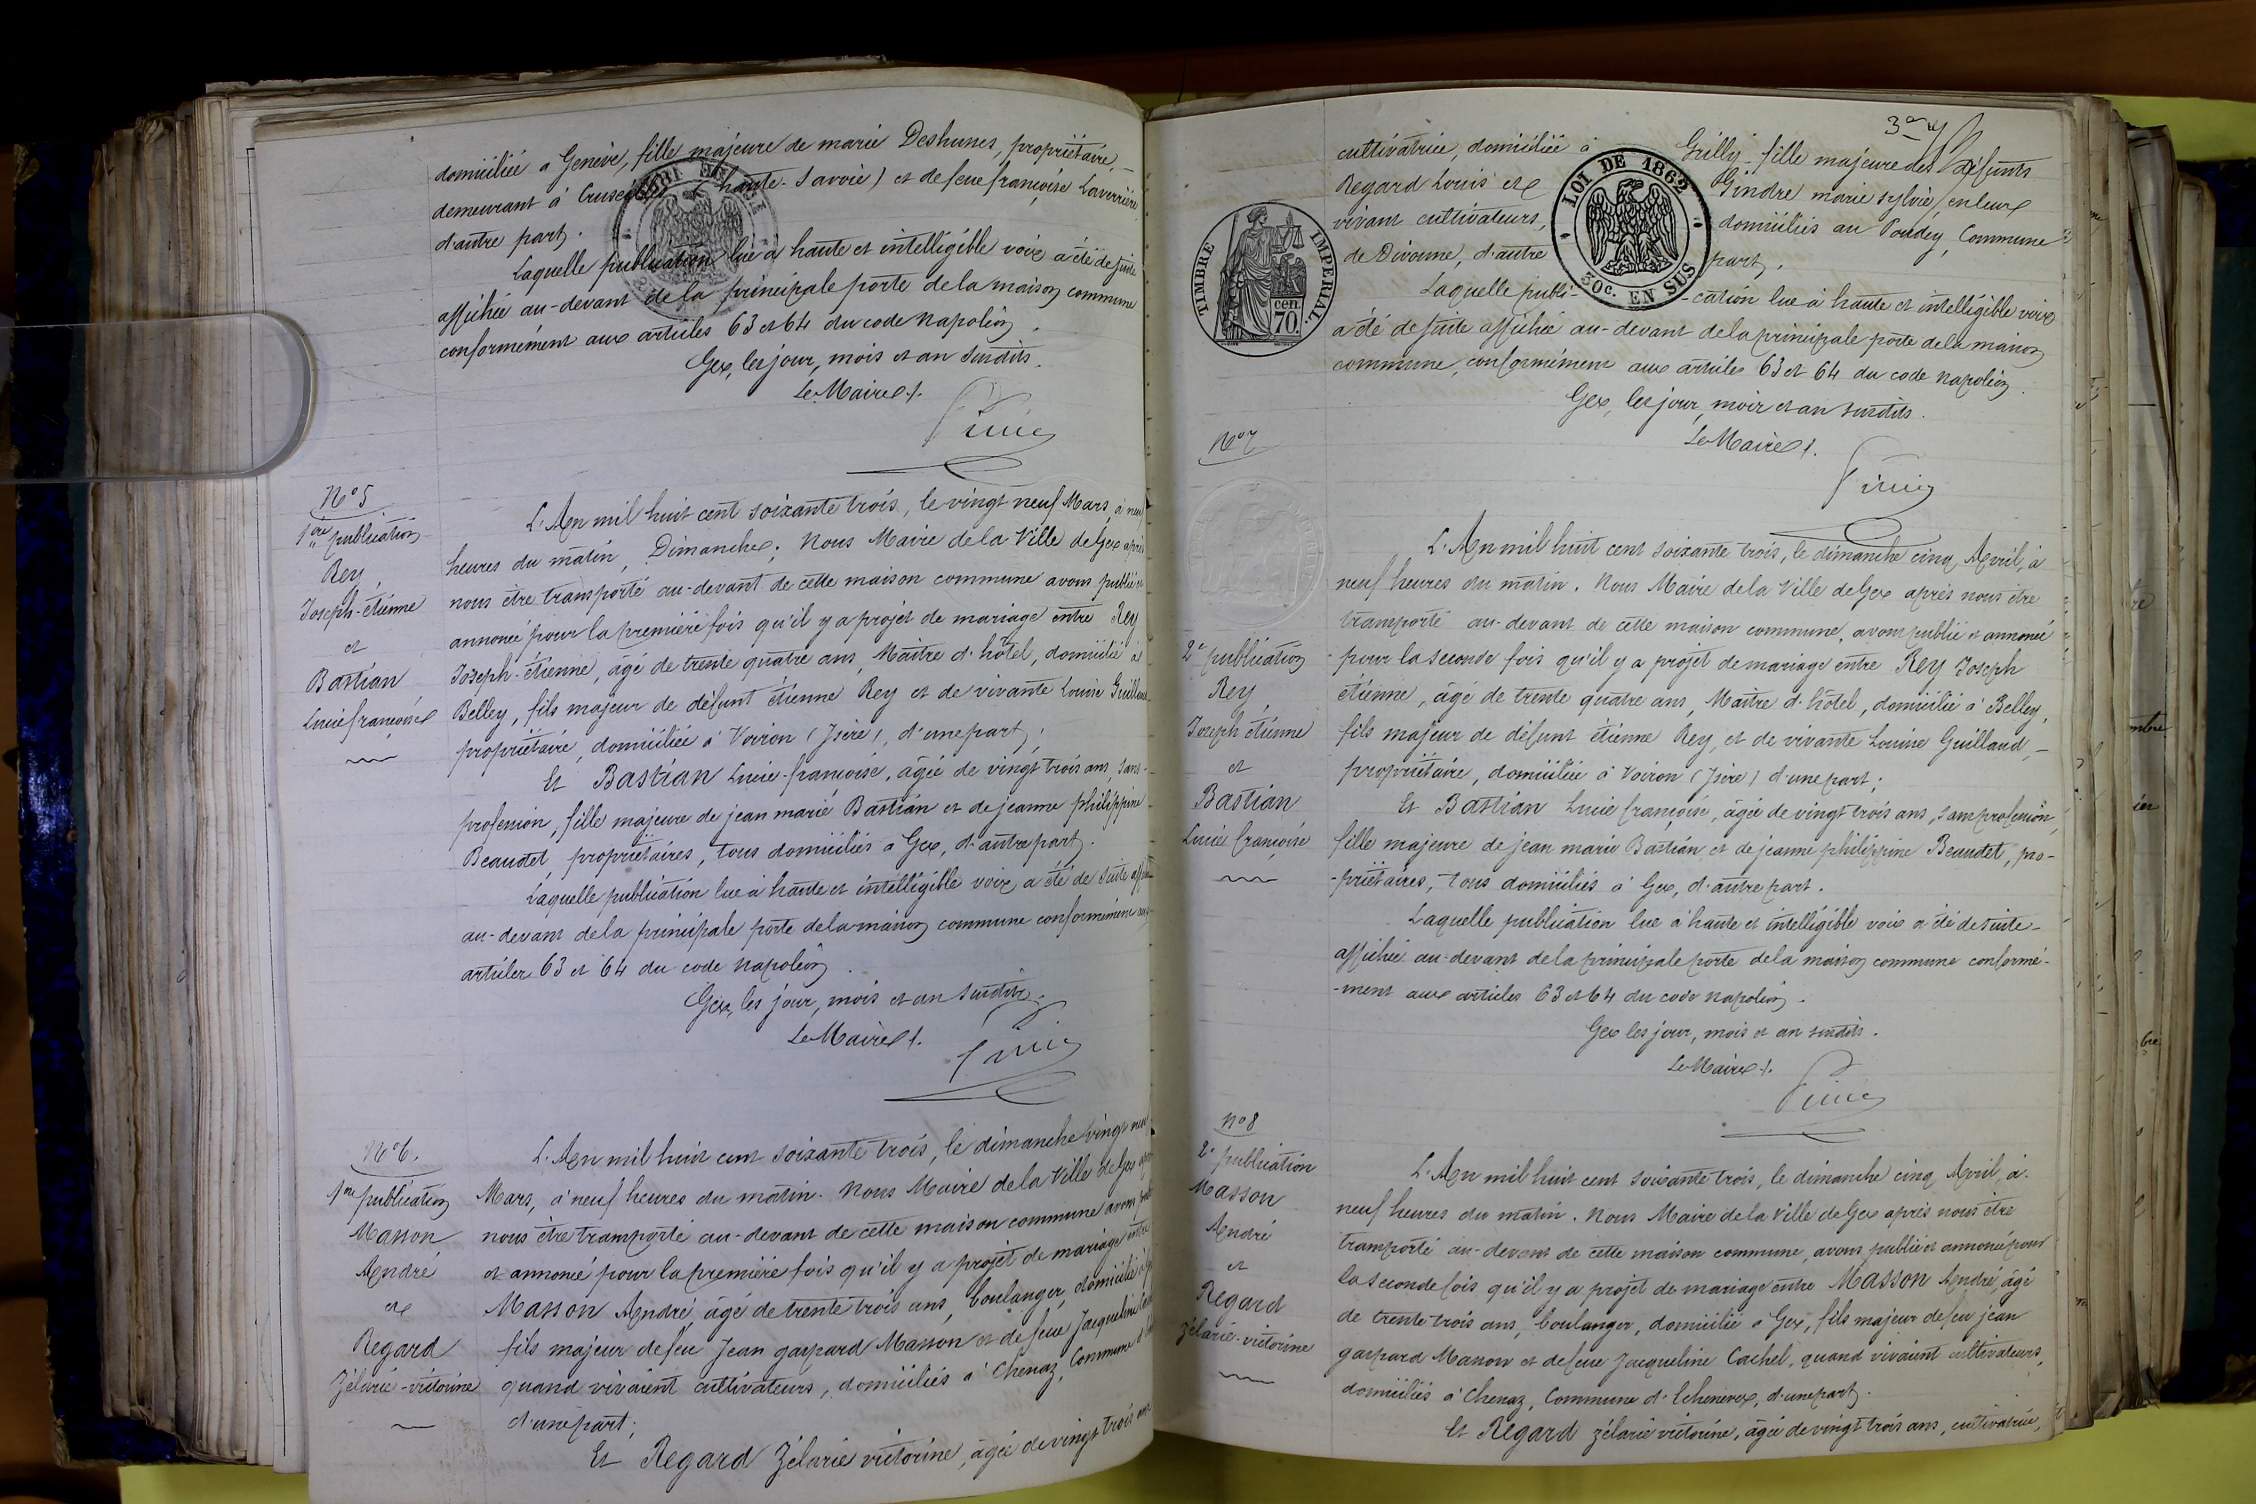 domiciliée a Genève, fille majeure de marie Deshuses, propriétaire,
demeurant à (haute-Savoie) et de feue françoise Laverrière
d'autre part.
Laquelle publication lue à haute et intelligible voix a été de suite
affichée au-devant de la principale porte de la maison commune
conformément aux articles 63 et 64 du code napoléon.
Gex, les jour, mois et an susdits.
Le Maire
N° 5
1ère publication
Rey
Joseph-étienne
et
Bastian
Lucie françoise
L'An mil huit cent soixante trois, le vingt neuf Mars, à neuf
heures du matin, Dimanche; Nous Maire de la Ville de Gex après
nous être transporté au-devant de cette maison commune avons publié et
annoncé pour la première fois qu'il y a projet de mariage entre Rey
Joseph-étienne, âgé de trente quatre ans, Maître d'hôtel, domicilié à
Belley, fils majeur de défunt étienne Rey et de vivante Louise Guilland
propriétaire, domiciliée à Voiron (Isère), d'une part;
Et Bastian Lucie-françoise, âgée de vingt trois ans, sans-
profession, fille majeure de jean marie Bastian et de jeanne philippine
Beaudet, propriétaires, tous domiciliés à Gex, d'autre part.
Laquelle publication lue à haute et intelligible voix a été de suite affichée
au-devant de la principale porte de la maison commune conformément aux
articles 63 et 64 du code napoléon.
Gex, les jour, mois et an susdits.
Le Maire
N° 6.
1ère publication
Masson
André
et
Regard
Zélarie-victorine
L'An mil huit cent soixante trois, le dimanche vingt neuf
Mars, à neuf heures du matin. Nous Maire de la Ville de Gex après
nous être transporté au-devant de cette maison commune avons publié
et annoncé pour la première fois qu'il y a projet de mariage entre
Masson André, âgé de trente trois ans, boulanger, domicilié à Gex
fils majeur de feu Jean gaspard Masson et de feue Jacqueline
quand vivaient cultivateurs, domiciliés à Chenaz, Commune
d'une part;
Et Regard Zélarie victorine, âgée de vingt trois ans
TIMBRE IMPERIAL.
cen. 70.
LOI DE 1862
30c. EN SUS
cultivatrice, domiciliée à Grilly - fille majeure des défunts
Regard Louis et Gindre marie sylvie, en leur
vivant cultivateurs, domiciliés au Poudey, Commune
de Divonne, d'autre part.
Laquelle publi- -cation lue à haute et intelligible voix
a été de suite affichée au-devant de la principale porte de la maison
commune, conformément aux articles 63 et 64 du code napoléon.
Gex, les jour, mois et an susdits.
Le Maire
N° 7
2e publication
Rey
Joseph étienne
et
Bastian
Lucie françoise
L'An mil huit cent soixante trois, le dimanche cinq Avril, à
neuf heures du matin. Nous Maire de la Ville de Gex après nous être
transporté au-devant de cette maison commune, avons publié et annoncé
pour la seconde fois qu'il y a projet de mariage entre Rey Joseph
étienne, âgé de trente quatre ans, Maître d'hôtel, domicilié à Belley,
fils majeur de défunt étienne Rey, et de vivante Louise Guilland,-
propriétaire, domiciliée à Voiron (Isère) d'une part;
Et Bastian Lucie françoise, âgée de vingt trois ans, sans profession,
fille majeure de jean marie Bastian et de jeanne philippine Beaudet, pro-
-priétaires, tous domiciliés à Gex, d'autre part.
Laquelle publication lue à haute et intelligible voix a été de suite-
affichée au-devant de la principale porte de la maison commune conformé-
-ment aux articles 63 et 64 du code napoléon.
Gex les jour, mois et an susdits.
Le Maire
N° 8
2e publication
Masson
André
et
Regard
Zélarie-victorine
L'An mil huit cent soixante trois, le dimanche cinq Avril, à
neuf heures du matin. Nous Maire de la Ville de Gex après nous être
transporté au-devant de cette maison commune, avons publié et annoncé pour
la seconde fois qu'il y a projet de mariage entre Masson André, âgé
de trente trois ans, boulanger, domicilié à Gex, fils majeur de feu jean
gaspard Masson et de feue Jacqueline Cachel, quand vivaient cultivateurs,
domiciliés à Chenaz, Commune d'Echenevex, d'une part.
Et Regard zélarie victorine, âgée de vingt trois ans, cultivatrice,